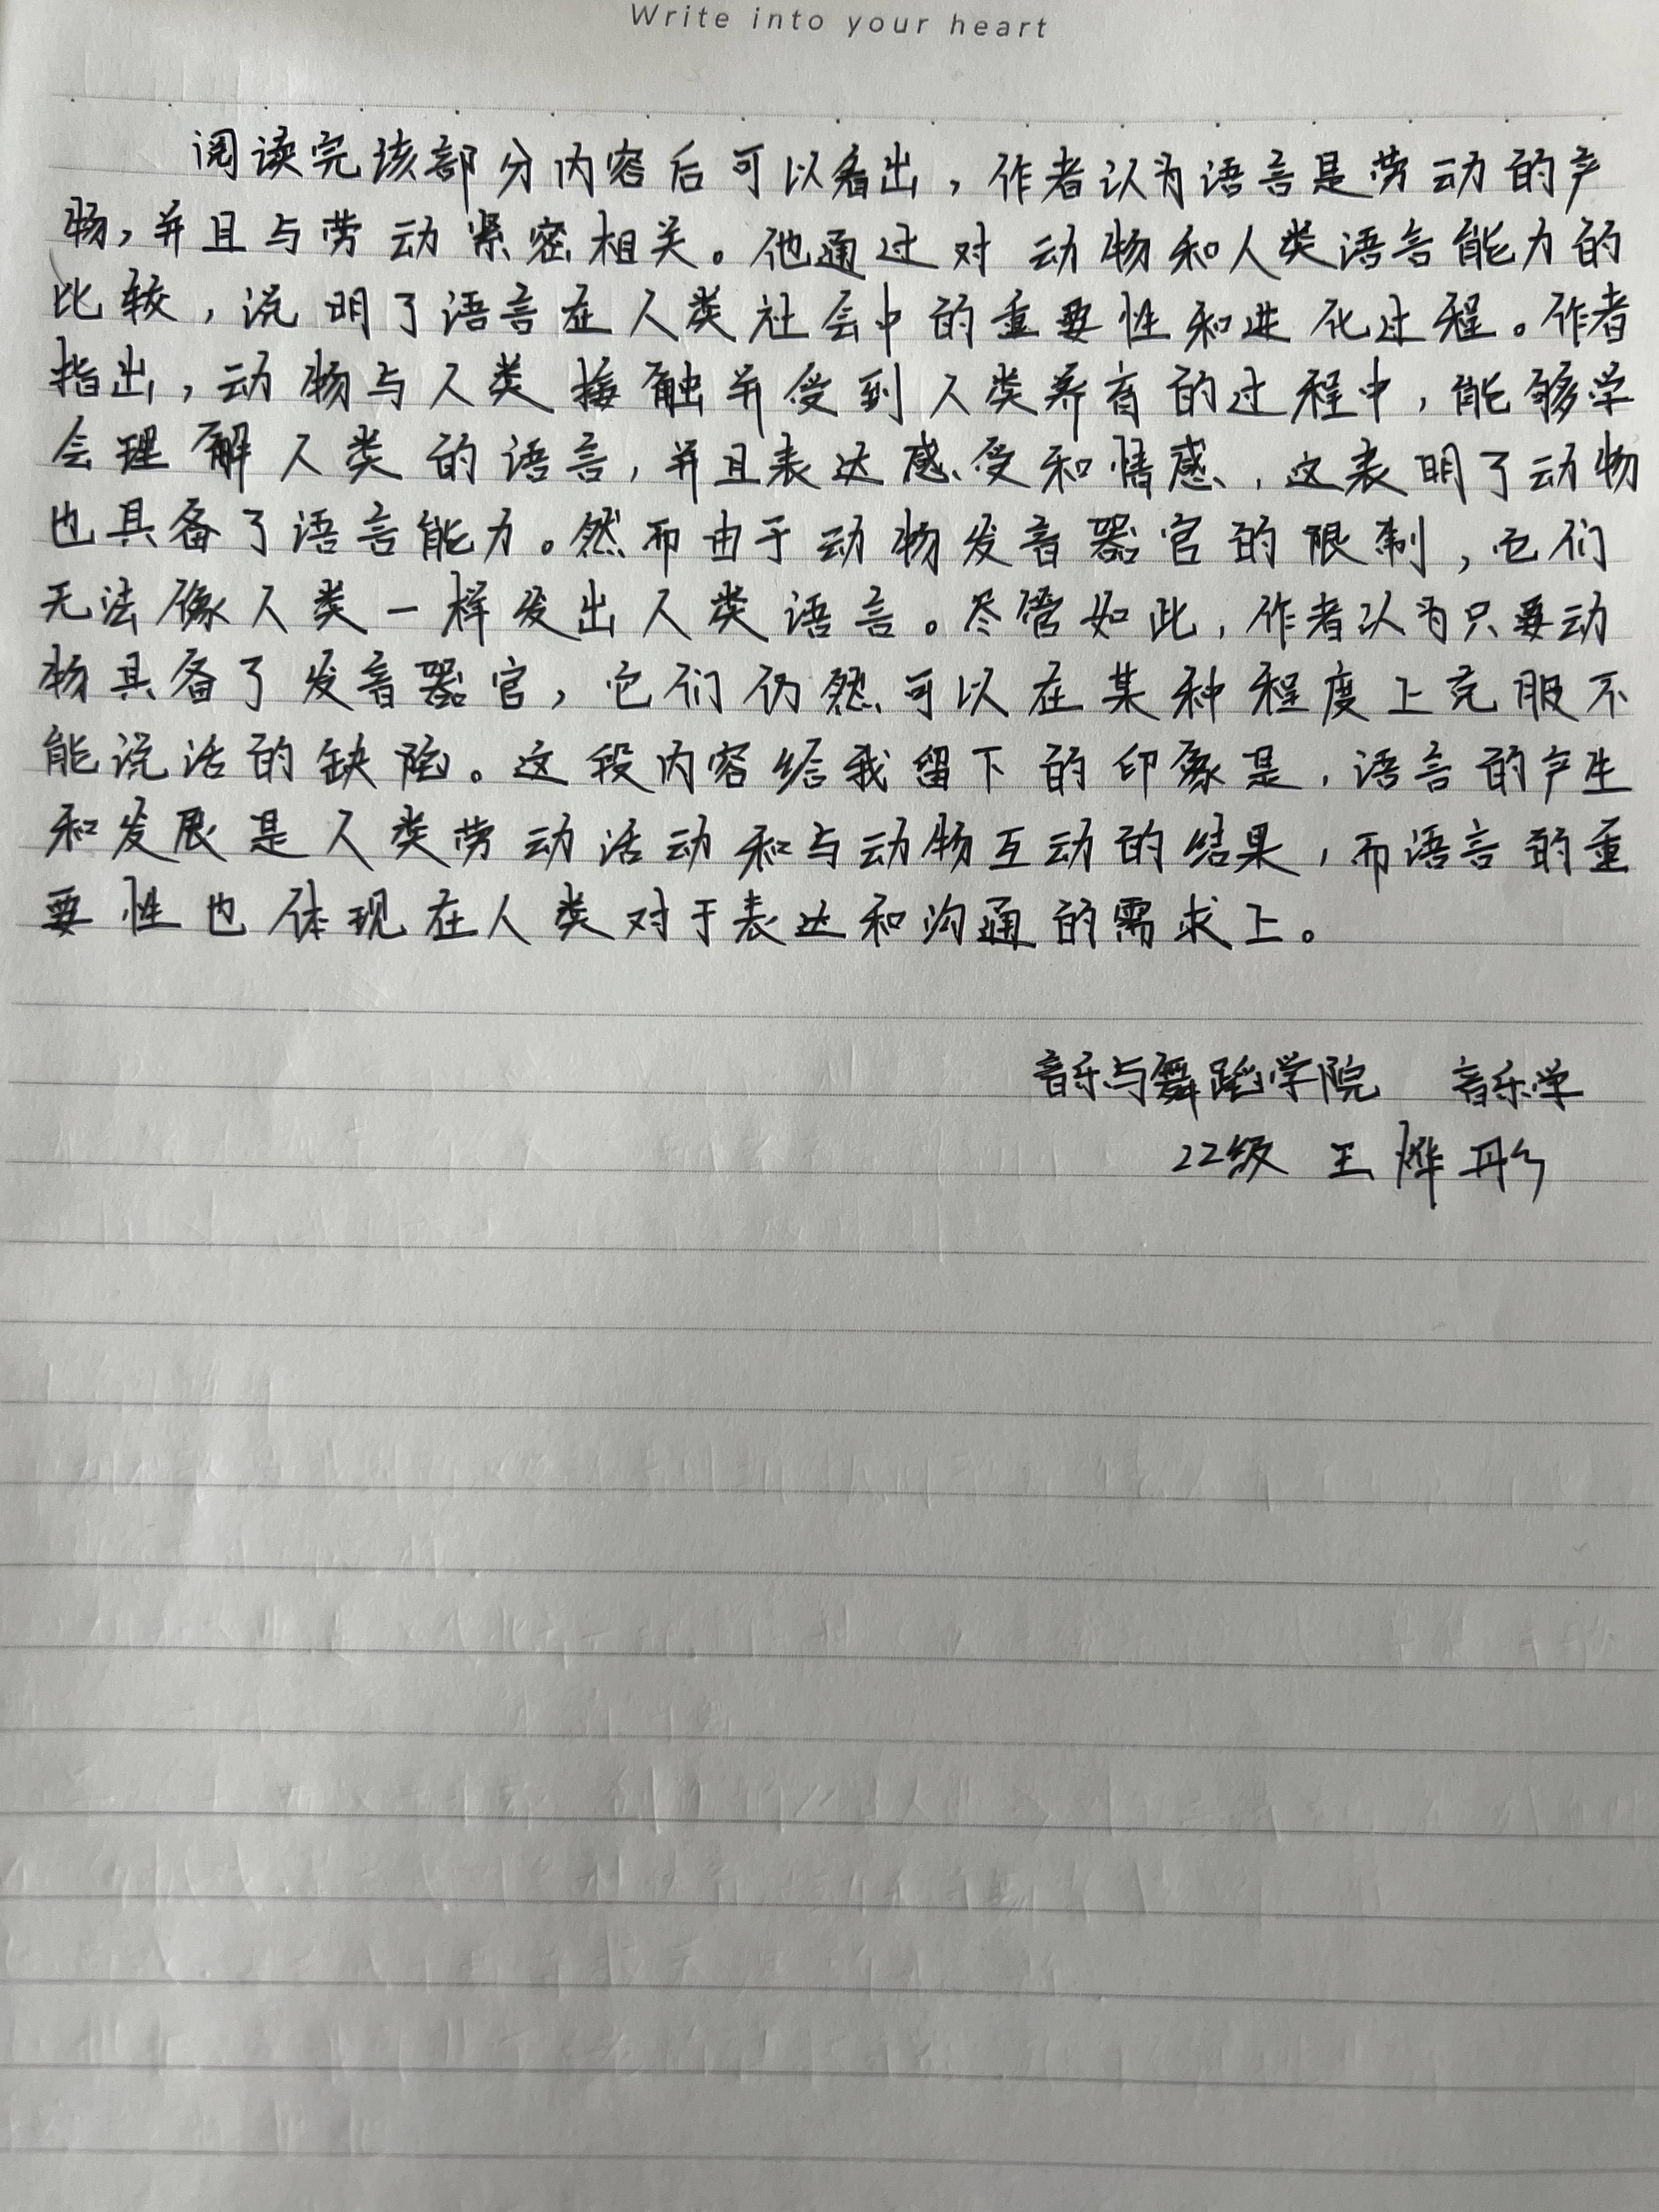 Write into your heart
阅读完该部分内容后可以看出，作者认为语言是劳动的产
物，并且与劳动紧密相关。他通过对动物和人类语言能力的
比较，说明了语言在人类社会中的重要性和进化过程。作者
指出，动物与人类接触并受到人类养育的过程中，能够学
会理解人类的语言，并且表达感受和情感，这表明了动物
也具备了语言能力。然而由于动物发音器官的限制，它们
无法像人类一样发出人类语言。尽管如此，作者认为只要动
物具备了发音器官，它们仍然可以在某种程度上克服不
能说话的缺陷。这段内容给我留下的印象是，语言的产生
和发展是人类劳动活动和与动物互动的结果，而语言的重
要性也体现在人类对于表达和沟通的需求上。
音乐与舞蹈学院 音乐学
22级 王烨彤